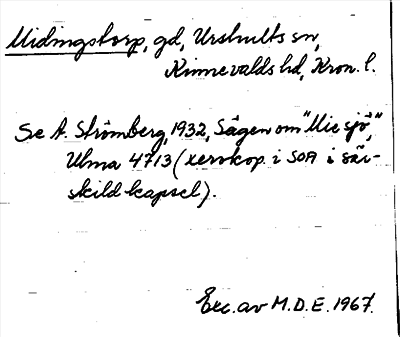 Midingstorp, gd, Urshults sn,
Kinnevalds hd, Kron. l.
Se A. Strömberg, 1932, Sägen om "Mie sjö,"
Ulma 4713 (xerokop. i SOA i sär-
skild kapsel).
Exc. av M.D.E. 1967.